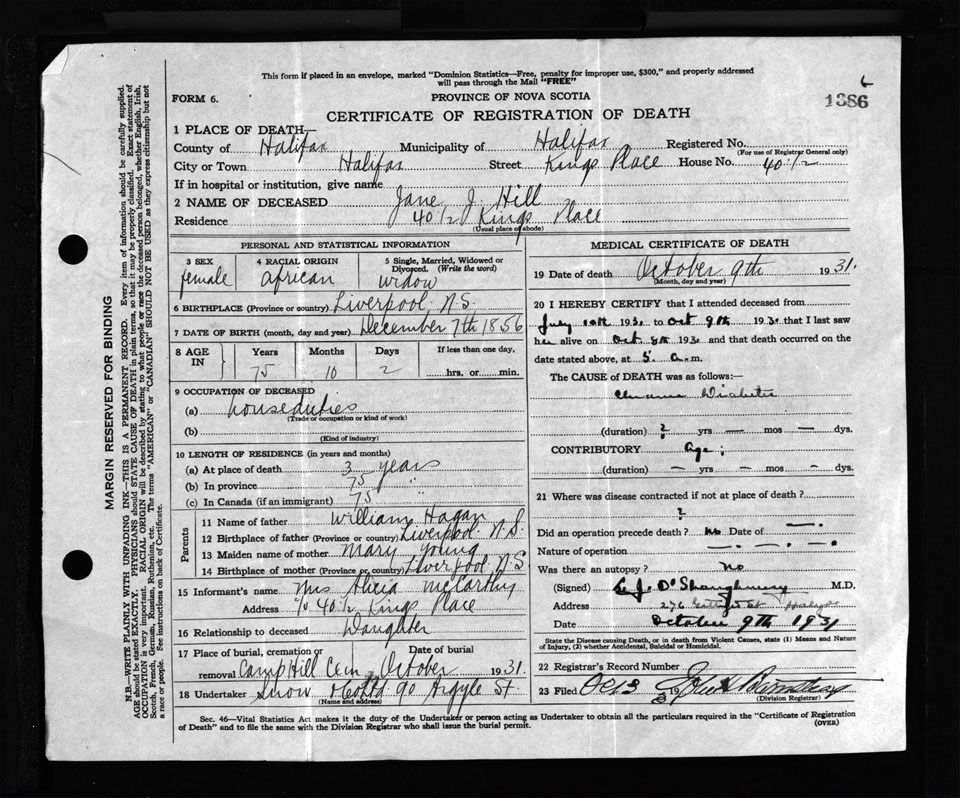 This form if placed in an envelope, marked "Dominion Statistics—Free, penalty for improper use, $300," and properly addressed
will pass through the Mail "FREE"
FORM 6.
PROVINCE OF NOVA SCOTIA
1386
CERTIFICATE OF REGISTRATION OF DEATH
1 PLACE OF DEATH—
County of Halifax Municipality of Halifax Registered No.
(For use of Registrar General only)
City or Town Halifax Street Kings Place House No. 40 1/2
If in hospital or institution, give name
2 NAME OF DECEASED Jane J. Hill
Residence 40 1/2 Kings Place
(Usual place of abode)
PERSONAL AND STATISTICAL INFORMATION
3 SEX
female
4 RACIAL ORIGIN
african
5 Single, Married, Widowed or
Divorced. (Write the word)
widow
6 BIRTHPLACE (Province or country) Liverpool N.S.
7 DATE OF BIRTH (month, day and year) December 7th 1856
8 AGE IN
Years Months Days If less than one day,
75 10 2 hrs. or min.
9 OCCUPATION OF DECEASED
(a) houseduties
(Trade or occupation or kind of work)
(b)
(Kind of industry)
10 LENGTH OF RESIDENCE (in years and months)
(a) At place of death 3 years
(b) In province 75 "
(c) In Canada (if an immigrant) 75 "
Parents
11 Name of father William Hagan
12 Birthplace of father (Province or country) Liverpool N.S.
13 Maiden name of mother Mary Young
14 Birthplace of mother (Province or country) Liverpool N.S
15 Informant's name Mrs Alicia McCarthy
Address 40 1/2 Kings Place
16 Relationship to deceased Daughter
17 Place of burial, cremation or Date of burial
removal Camp Hill Cem. October 1931.
18 Undertaker Snow 90 Argyle St
(Name and address)
MEDICAL CERTIFICATE OF DEATH
19 Date of death October 9th 1931.
(Month, day and year)
20 I HEREBY CERTIFY that I attended deceased from
July 193 to Oct 9th 193 that I last saw
her alive on Oct 8th 193 and that death occurred on the
date stated above, at 5. a.m.
The CAUSE of DEATH was as follows:—
Diabetes
(duration) ? yrs — mos — dys.
CONTRIBUTORY Age;
(duration) — yrs — mos — dys.
21 Where was disease contracted if not at place of death?
?
Did an operation precede death? no Date of —.
Nature of operation —. —. —.
Was there an autopsy? no
(Signed) O'Shaughnessy M.D.
Address 276
Date October 9th 1931
State the Disease causing Death, or in death from Violent Causes, state (1) Means and Nature
of Injury, (2) whether Accidental, Suicidal or Homicidal.
22 Registrar's Record Number
23 Filed Oct
(Division Registrar)
Sec. 46—Vital Statistics Act makes it the duty of the Undertaker or person acting as Undertaker to obtain all the particulars required in the "Certificate of Registration
of Death" and to file the same with the Division Registrar who shall issue the burial permit.
(OVER)
MARGIN RESERVED FOR BINDING
N.B.—WRITE PLAINLY WITH UNFADING INK—THIS IS A PERMANENT RECORD. Every item of information should be carefully supplied.
AGE should be stated EXACTLY. PHYSICIANS should STATE CAUSE OF DEATH in plain terms, so that it may be properly classified. Exact statement of
OCCUPATION is very important. RACIAL ORIGIN will be described by stating to what people or race the deceased person belonged, whether English, Irish,
Scotch, French, German, Russian, Ruthenian, etc. The terms "AMERICAN" or "CANADIAN" SHOULD NOT BE USED as they express citizenship but not
a race or people. See instructions on back of Certificate.